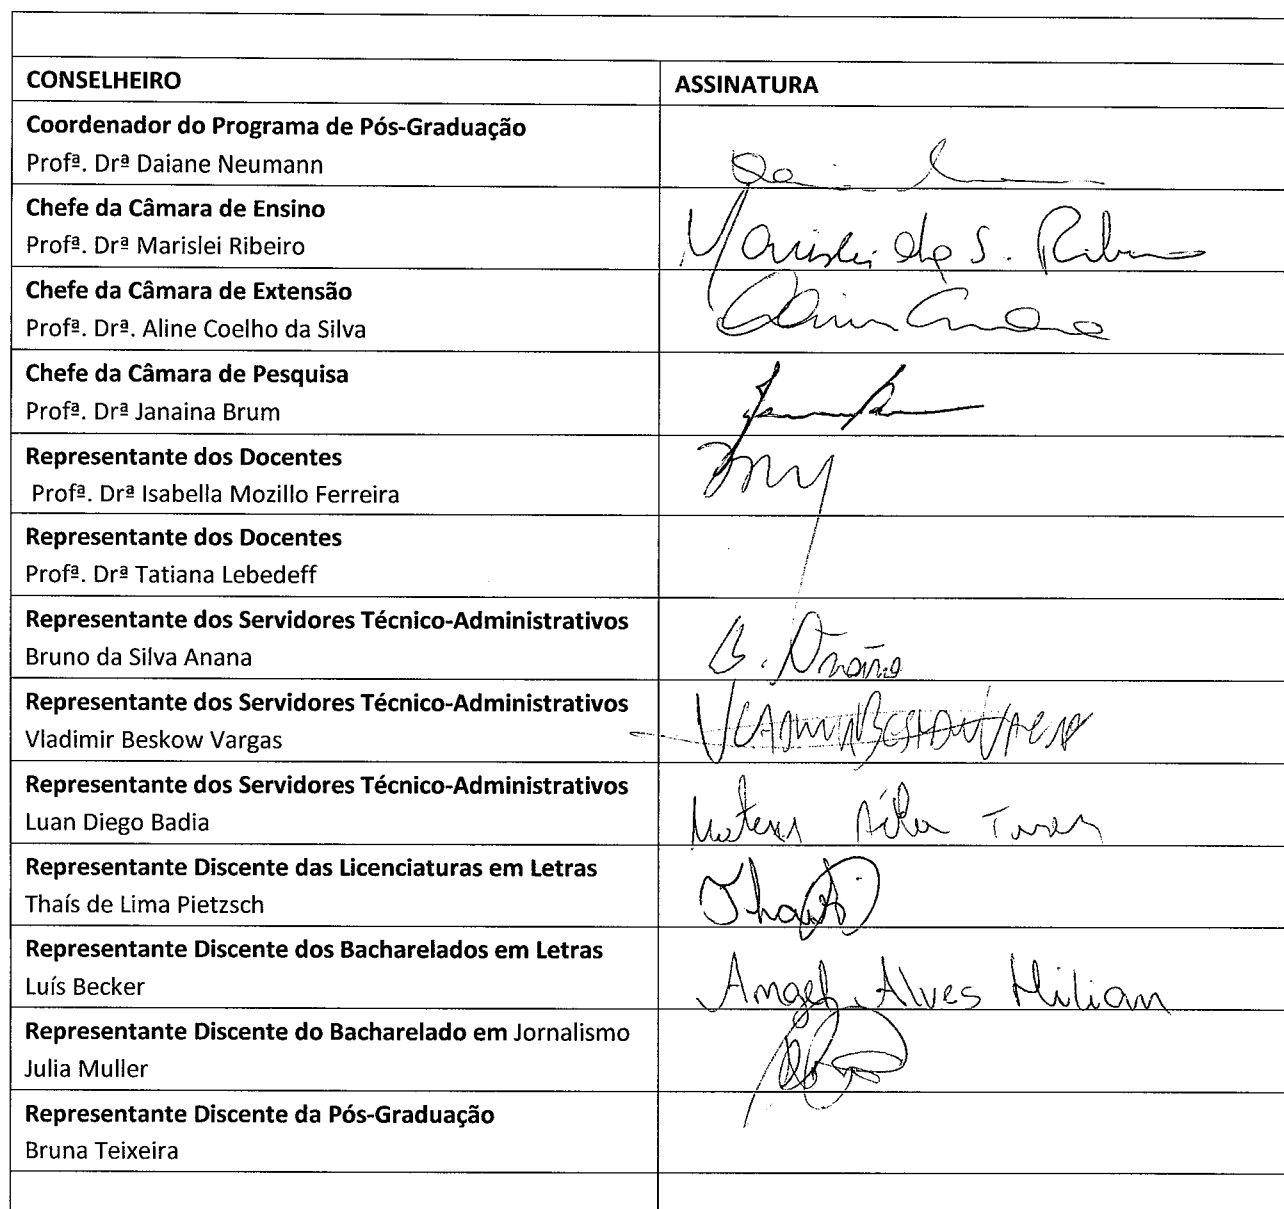 CONSELHEIRO
ASSINATURA
Coordenador do Programa de Pós-Graduação
Profª. Drª Daiane Neumann
Chefe da Câmara de Ensino
Profª. Drª Marislei Ribeiro
Marislei da S. Ribeiro
Chefe da Câmara de Extensão
Profª. Drª. Aline Coelho da Silva
Chefe da Câmara de Pesquisa
Profª. Drª Janaina Brum
Representante dos Docentes
Profª. Drª Isabella Mozillo Ferreira
Representante dos Docentes
Profª. Drª Tatiana Lebedeff
Representante dos Servidores Técnico-Administrativos
Bruno da Silva Anana
B. Anana
Representante dos Servidores Técnico-Administrativos
Vladimir Beskow Vargas
Representante dos Servidores Técnico-Administrativos
Luan Diego Badia
Representante Discente das Licenciaturas em Letras
Thaís de Lima Pietzsch
Representante Discente dos Bacharelados em Letras
Luís Becker
Angel Alves Milian
Representante Discente do Bacharelado em Jornalismo
Julia Muller
Representante Discente da Pós-Graduação
Bruna Teixeira